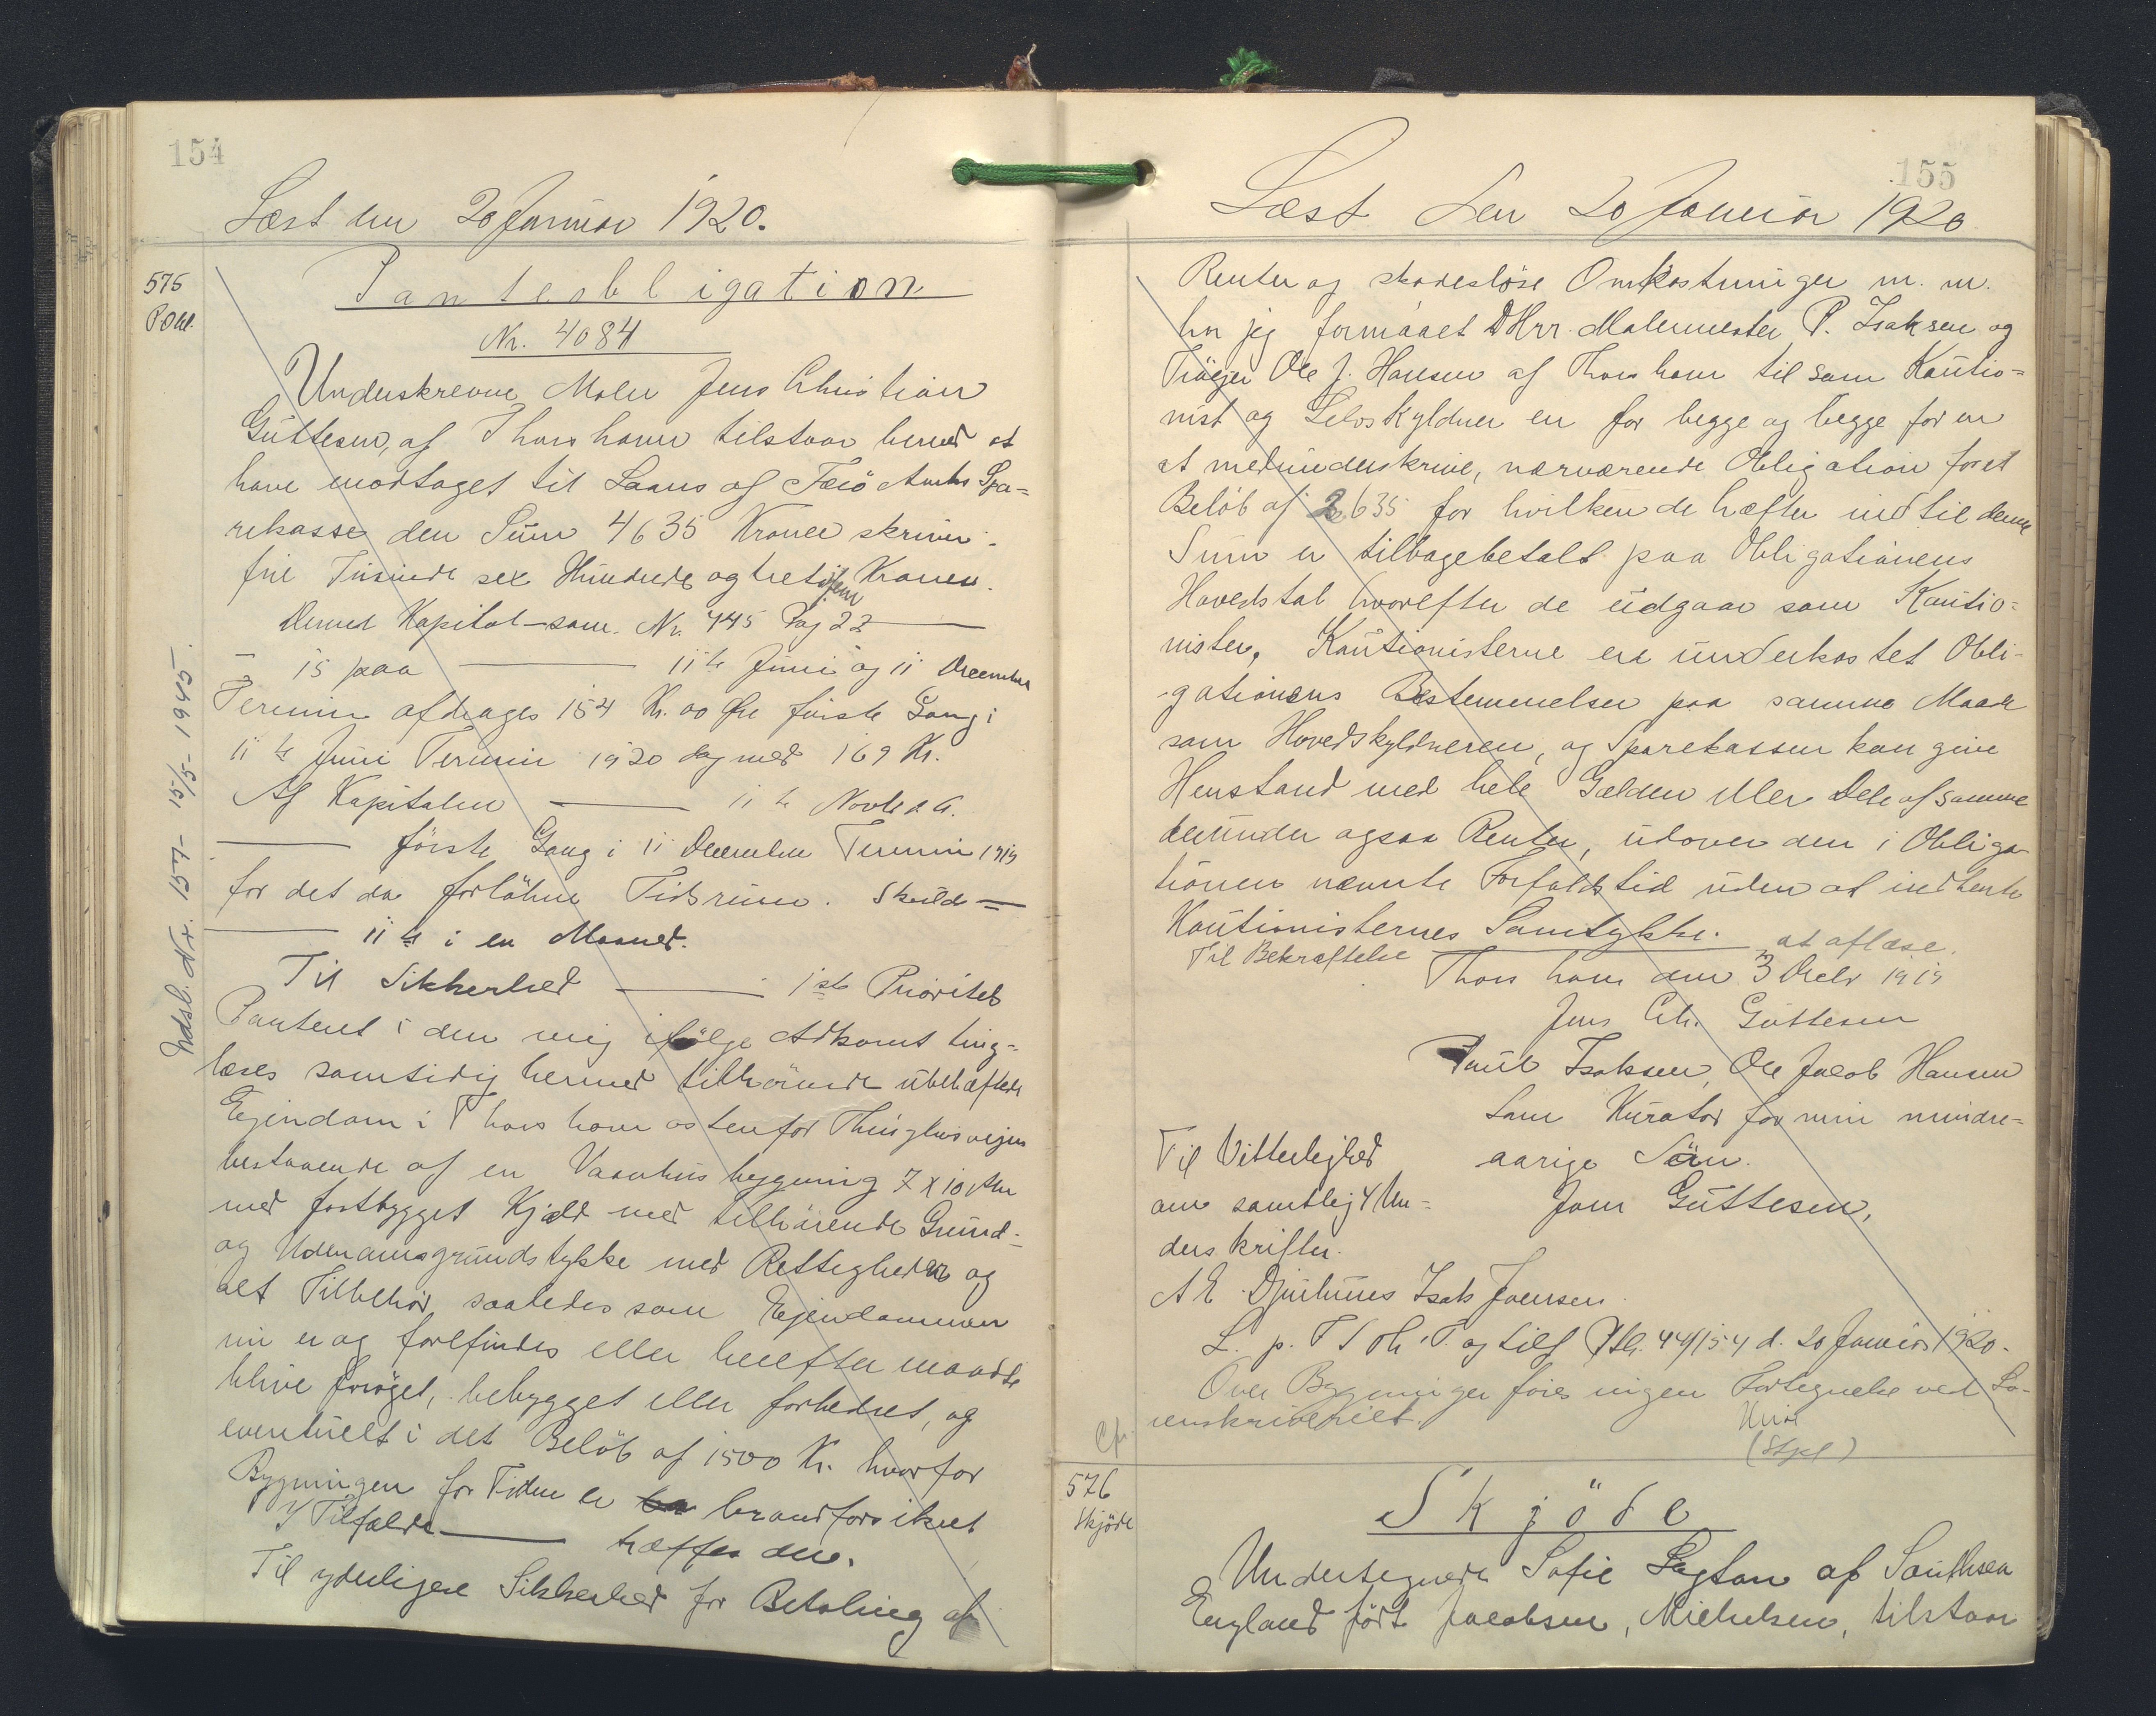 154
Læst den 20 Januar 1920.
575
P Obl.
Panteobligation
Nr. 4084
Underskrevne Maler Jens Christian
Guttesen, af Thorshavn tilstaar herved at
have modtaget til Laans af Færö Amts Spa-
rekasse den Sum 4635 Kroner skriver
fire Tusinde sex Hundrede og treti fem Kroner.
Denne Kapital — som Nr. 445 Pag 22 —
— 15 paa — 11te Juni og 11 December
Termin afdrages 154 Kr. 00 Øre første Gang i
11te Juni Termin 1920 dog med 169 Kr.
Af Kapitalen — 11te
— förste Gang i 11 December Termin 1919
for det da forløbne Tidsrum. Skuld —
— 11te i en Maaned.
Til Sikkerhed — 1ste Prioritets
Panteret i den mig ifølge Adkomst ting-
læses samtidig hermed tilhørende ubehæftede
Ejendom i Thorshavn østenfor Thinghusvejen
bestaaende af en Vaanhusbygning 7 x 10 Aln
med fastbygget Kjeld med tilhørende Grund-
og Udenomsgrundstykke med Rettigheder og
alt Tilbehör, saaledes som Ejendommen
nu er og forefindes eller herefter maatte
blive forøget, bebygget eller forbedret, og
eventuelt i det Belöb af 1500 Kr. hvorfor
Bygningen for Tiden er brandforsikret
I Tilfælde — træffes den.
Til yderligere Sikkerhed for Betaling af
Udsl. Nr. 157 - 15/5 - 1945.
155
Læst den 20 Januar 1920
Renter og skadesløse Omkostninger m. m.
har jeg formaaet DHrr. Malermester P. Isaksen og
Ole J. Hansen af Thorshavn til som Kautio-
nist og Selvskyldner en for begge og begge for en
at medunderskrive, nærværende Obligation for et
Belöb af 2635 for hvilken de hæfter indtil denne
Sum er tilbagebetalt paa Obligationens
Hovedstol hvorefter de udgaar som Kautio-
nister. Kautionisterne ere underkastet Obli-
gationens Bestemmelser paa samme Maade
som Hovedskyldneren, og Sparekassen kan give
Henstand med hele Gælden eller Dele af samme
derunder ogsaa Renter, udover den i Obliga-
tionen nævnte Forfaldstid uden at indhente
Kautionisternes Samtykke. — at aflæse.
Til Bekræftelse
Thorshavn den 3 Decbr 1919
Jens Chr. Guttesen
Paul Isaksen, Ole Jacob Hansen
Som Kurator for min mindre-
Til Vitterlighed aarige Sön.
om samtlig 4 Un- Joen Guttesen,
derskrifter.
A E Djurhuus Isak Joensen.
20 Januar 1920.
Over Bygninger føres ingen Fortegnelse ved So-
renskriveriet.
(Stpl)
Cfr.
576
Skjöde
Skjöde
Undertegnede Sofie Legton af Southsea
England født Jacobsen, Michelsen, tilstaar